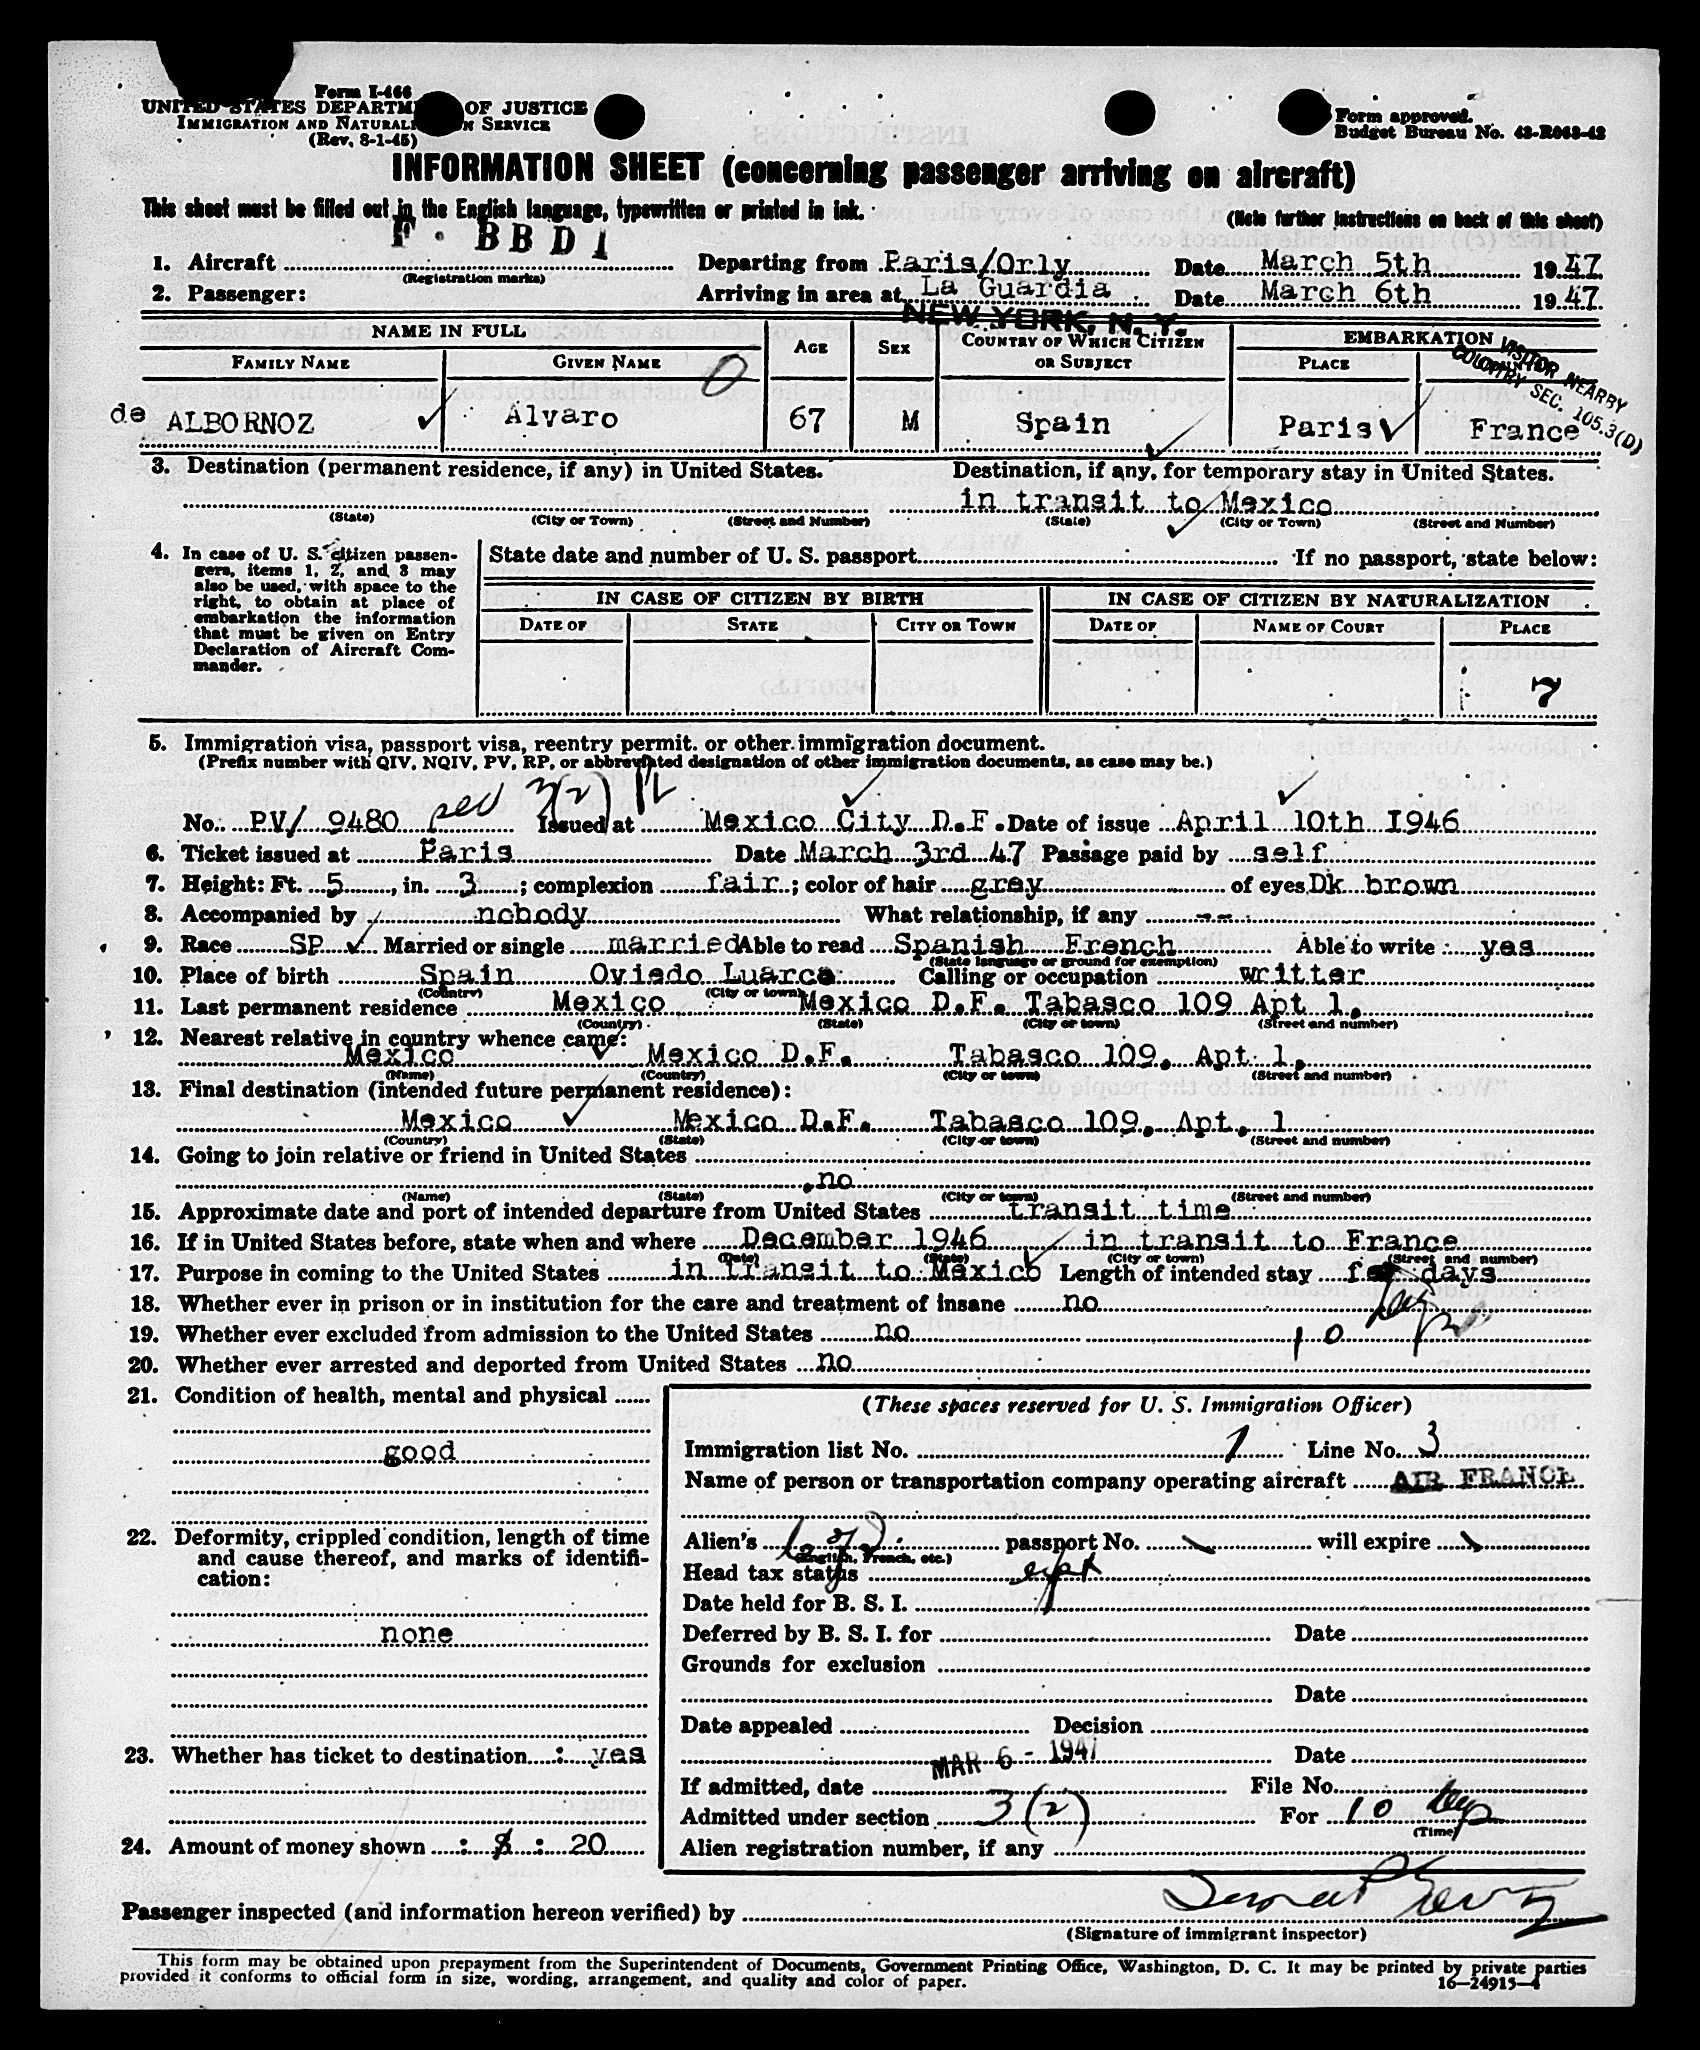 Form I-466
UNITED STATES DEPARTMENT OF JUSTICE
IMMIGRATION AND NATURALIZATION SERVICE
(Rev. 8-1-45)
Form approved.
Budget Bureau No. 43-R068-42
INFORMATION SHEET (concerning passenger arriving on aircraft)
This sheet must be filled out in the English language, typewritten or printed in ink.
(Note further instructions on back of this sheet)
F. BBDI
1. Aircraft (Registration marks) Departing from Paris/Orly Date March 5th 1947
2. Passenger: Arriving in area at La Guardia Date March 6th 1947
NEW YORK, N. Y.
NAME IN FULL AGE SEX COUNTRY OF WHICH CITIZEN OR SUBJECT EMBARKATION
FAMILY NAME GIVEN NAME PLACE COUNTRY
VISITOR NEARBY
COUNTRY SEC. 105.3(D)
de ALBORNOZ Alvaro 67 M Spain Paris France
3. Destination (permanent residence, if any) in United States. Destination, if any, for temporary stay in United States.
in transit to Mexico
(State) (City or Town) (Street and Number) (State) (City or Town) (Street and Number)
4. In case of U. S. citizen passengers, items 1, 2, and 3 may also be used, with space to the right, to obtain at place of embarkation the information that must be given on Entry Declaration of Aircraft Commander.
State date and number of U. S. passport If no passport, state below:
IN CASE OF CITIZEN BY BIRTH IN CASE OF CITIZEN BY NATURALIZATION
DATE OF STATE CITY OR TOWN DATE OF NAME OF COURT PLACE
7
5. Immigration visa, passport visa, reentry permit, or other immigration document.
(Prefix number with QIV, NQIV, PV, RP, or abbreviated designation of other immigration documents, as case may be.)
3(2)
No. PV/ 9480 Issued at Mexico City D.F. Date of issue April 10th 1946
6. Ticket issued at Paris Date March 3rd 47 Passage paid by self
7. Height: Ft. 5, in. 3; complexion fair; color of hair grey of eyes Dk brown
8. Accompanied by nobody What relationship, if any --
9. Race SP Married or single married Able to read Spanish French Able to write yes
(State language or ground for exemption)
10. Place of birth Spain Oviedo Luarca Calling or occupation writter
(Country) (City or town)
11. Last permanent residence Mexico Mexico D.F. Tabasco 109 Apt 1.
(Country) (State) (City or town) (Street and number)
12. Nearest relative in country whence came:
Mexico Mexico D.F. Tabasco 109, Apt 1,
(Name) (Country) (City or town) (Street and number)
13. Final destination (intended future permanent residence):
Mexico Mexico D.F. Tabasco 109, Apt. 1
(Country) (State) (City or town) (Street and number)
14. Going to join relative or friend in United States
no
(Name) (State) (City or town) (Street and number)
15. Approximate date and port of intended departure from United States transit time
16. If in United States before, state when and where December 1946 in transit to France
(Date) (State) (City or town) (Street and number)
17. Purpose in coming to the United States in transit to Mexico Length of intended stay few days
18. Whether ever in prison or in institution for the care and treatment of insane no
19. Whether ever excluded from admission to the United States no 10 days
20. Whether ever arrested and deported from United States no
21. Condition of health, mental and physical
good
22. Deformity, crippled condition, length of time and cause thereof, and marks of identification:
none
23. Whether has ticket to destination : yes
24. Amount of money shown : $ : 20
(These spaces reserved for U. S. Immigration Officer)
Immigration list No. 1 Line No. 3
Name of person or transportation company operating aircraft AIR FRANCE
Alien's passport No. will expire
(English, French, etc.)
Head tax status
Date held for B. S. I.
Deferred by B. S. I. for Date
Grounds for exclusion
Date
Date appealed Decision
Date
MAR 6 - 1947
If admitted, date File No.
Admitted under section 3(2) For 10 days
(Time)
Alien registration number, if any
Passenger inspected (and information hereon verified) by
(Signature of immigrant inspector)
This form may be obtained upon prepayment from the Superintendent of Documents, Government Printing Office, Washington, D. C. It may be printed by private parties
provided it conforms to official form in size, wording, arrangement, and quality and color of paper.
16—24915-4